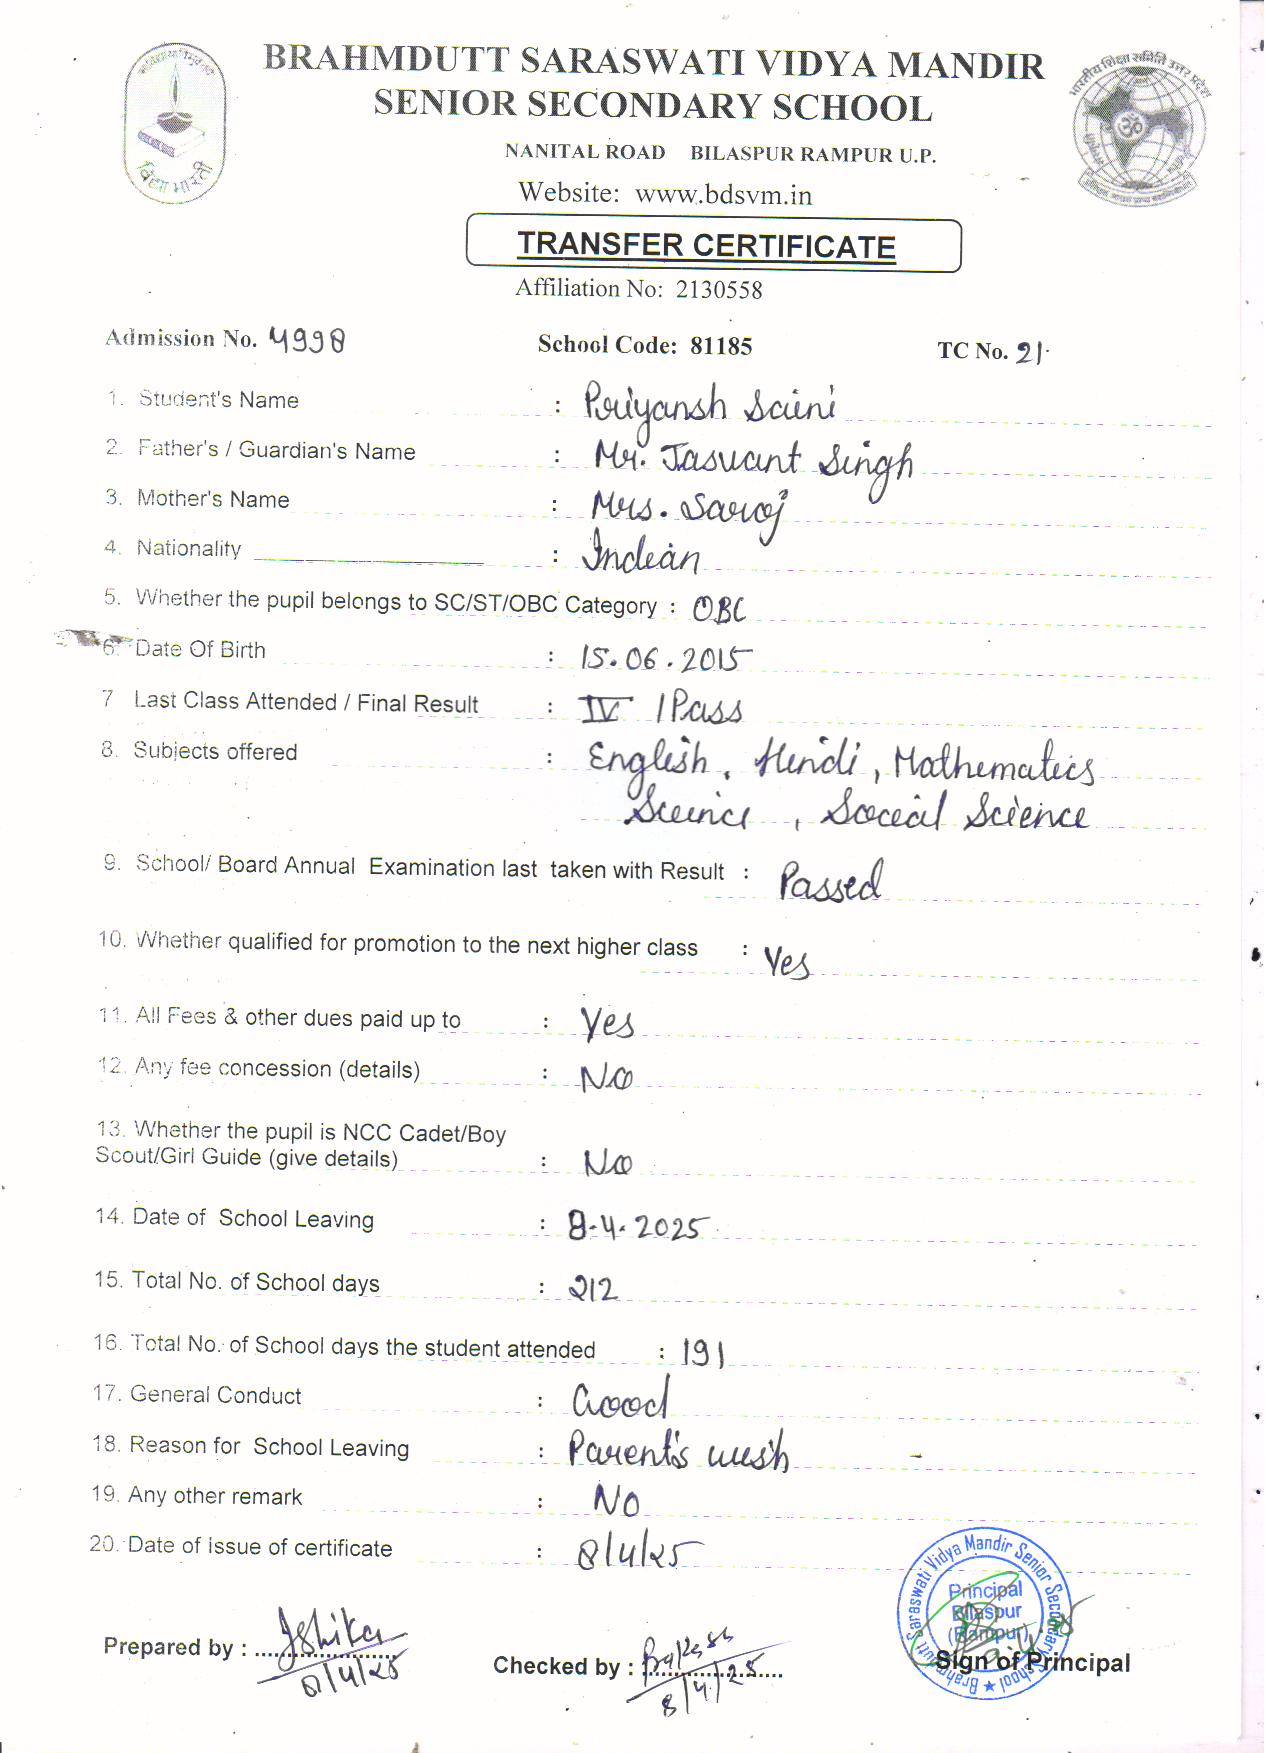 BRAHMDUTT SARASWATI VIDYA MANDIR
SENIOR SECONDARY SCHOOL
NANITAL ROAD BILASPUR RAMPUR U.P.
Website: www.bdsvm.in
विद्या भारती
भारतीय शिक्षा समिति उत्तर प्रदेश
TRANSFER CERTIFICATE
Affiliation No: 2130558
Admission No. 4998 School Code: 81185 TC No. 21.
1. Student's Name : Priyansh Saini
2. Father's / Guardian's Name : Mr. Jaswant Singh
3. Mother's Name : Mrs. Saroj
4. Nationality : Indian
5. Whether the pupil belongs to SC/ST/OBC Category : OBC
6. Date Of Birth : 15.06.2015
7 Last Class Attended / Final Result : IV / Pass
8. Subjects offered : English, Hindi, Mathematics
Science, Social Science
9. School/ Board Annual Examination last taken with Result : Passed
10. Whether qualified for promotion to the next higher class : Yes
11. All Fees & other dues paid up to : Yes
12. Any fee concession (details) : No
13. Whether the pupil is NCC Cadet/Boy
Scout/Girl Guide (give details) : No
14. Date of School Leaving : 8-4-2025
15. Total No. of School days : 212
16. Total No. of School days the student attended : 191
17. General Conduct : Good
18. Reason for School Leaving : Parent's wish
19. Any other remark : No
20. Date of issue of certificate : 8/4/25
Brahmdutt Saraswati Vidya Mandir Senior Secondary School
Principal
Bilaspur
(Rampur)
Prepared by : Ishika
8/4/25
Checked by :
8/4/25
Sign of Principal